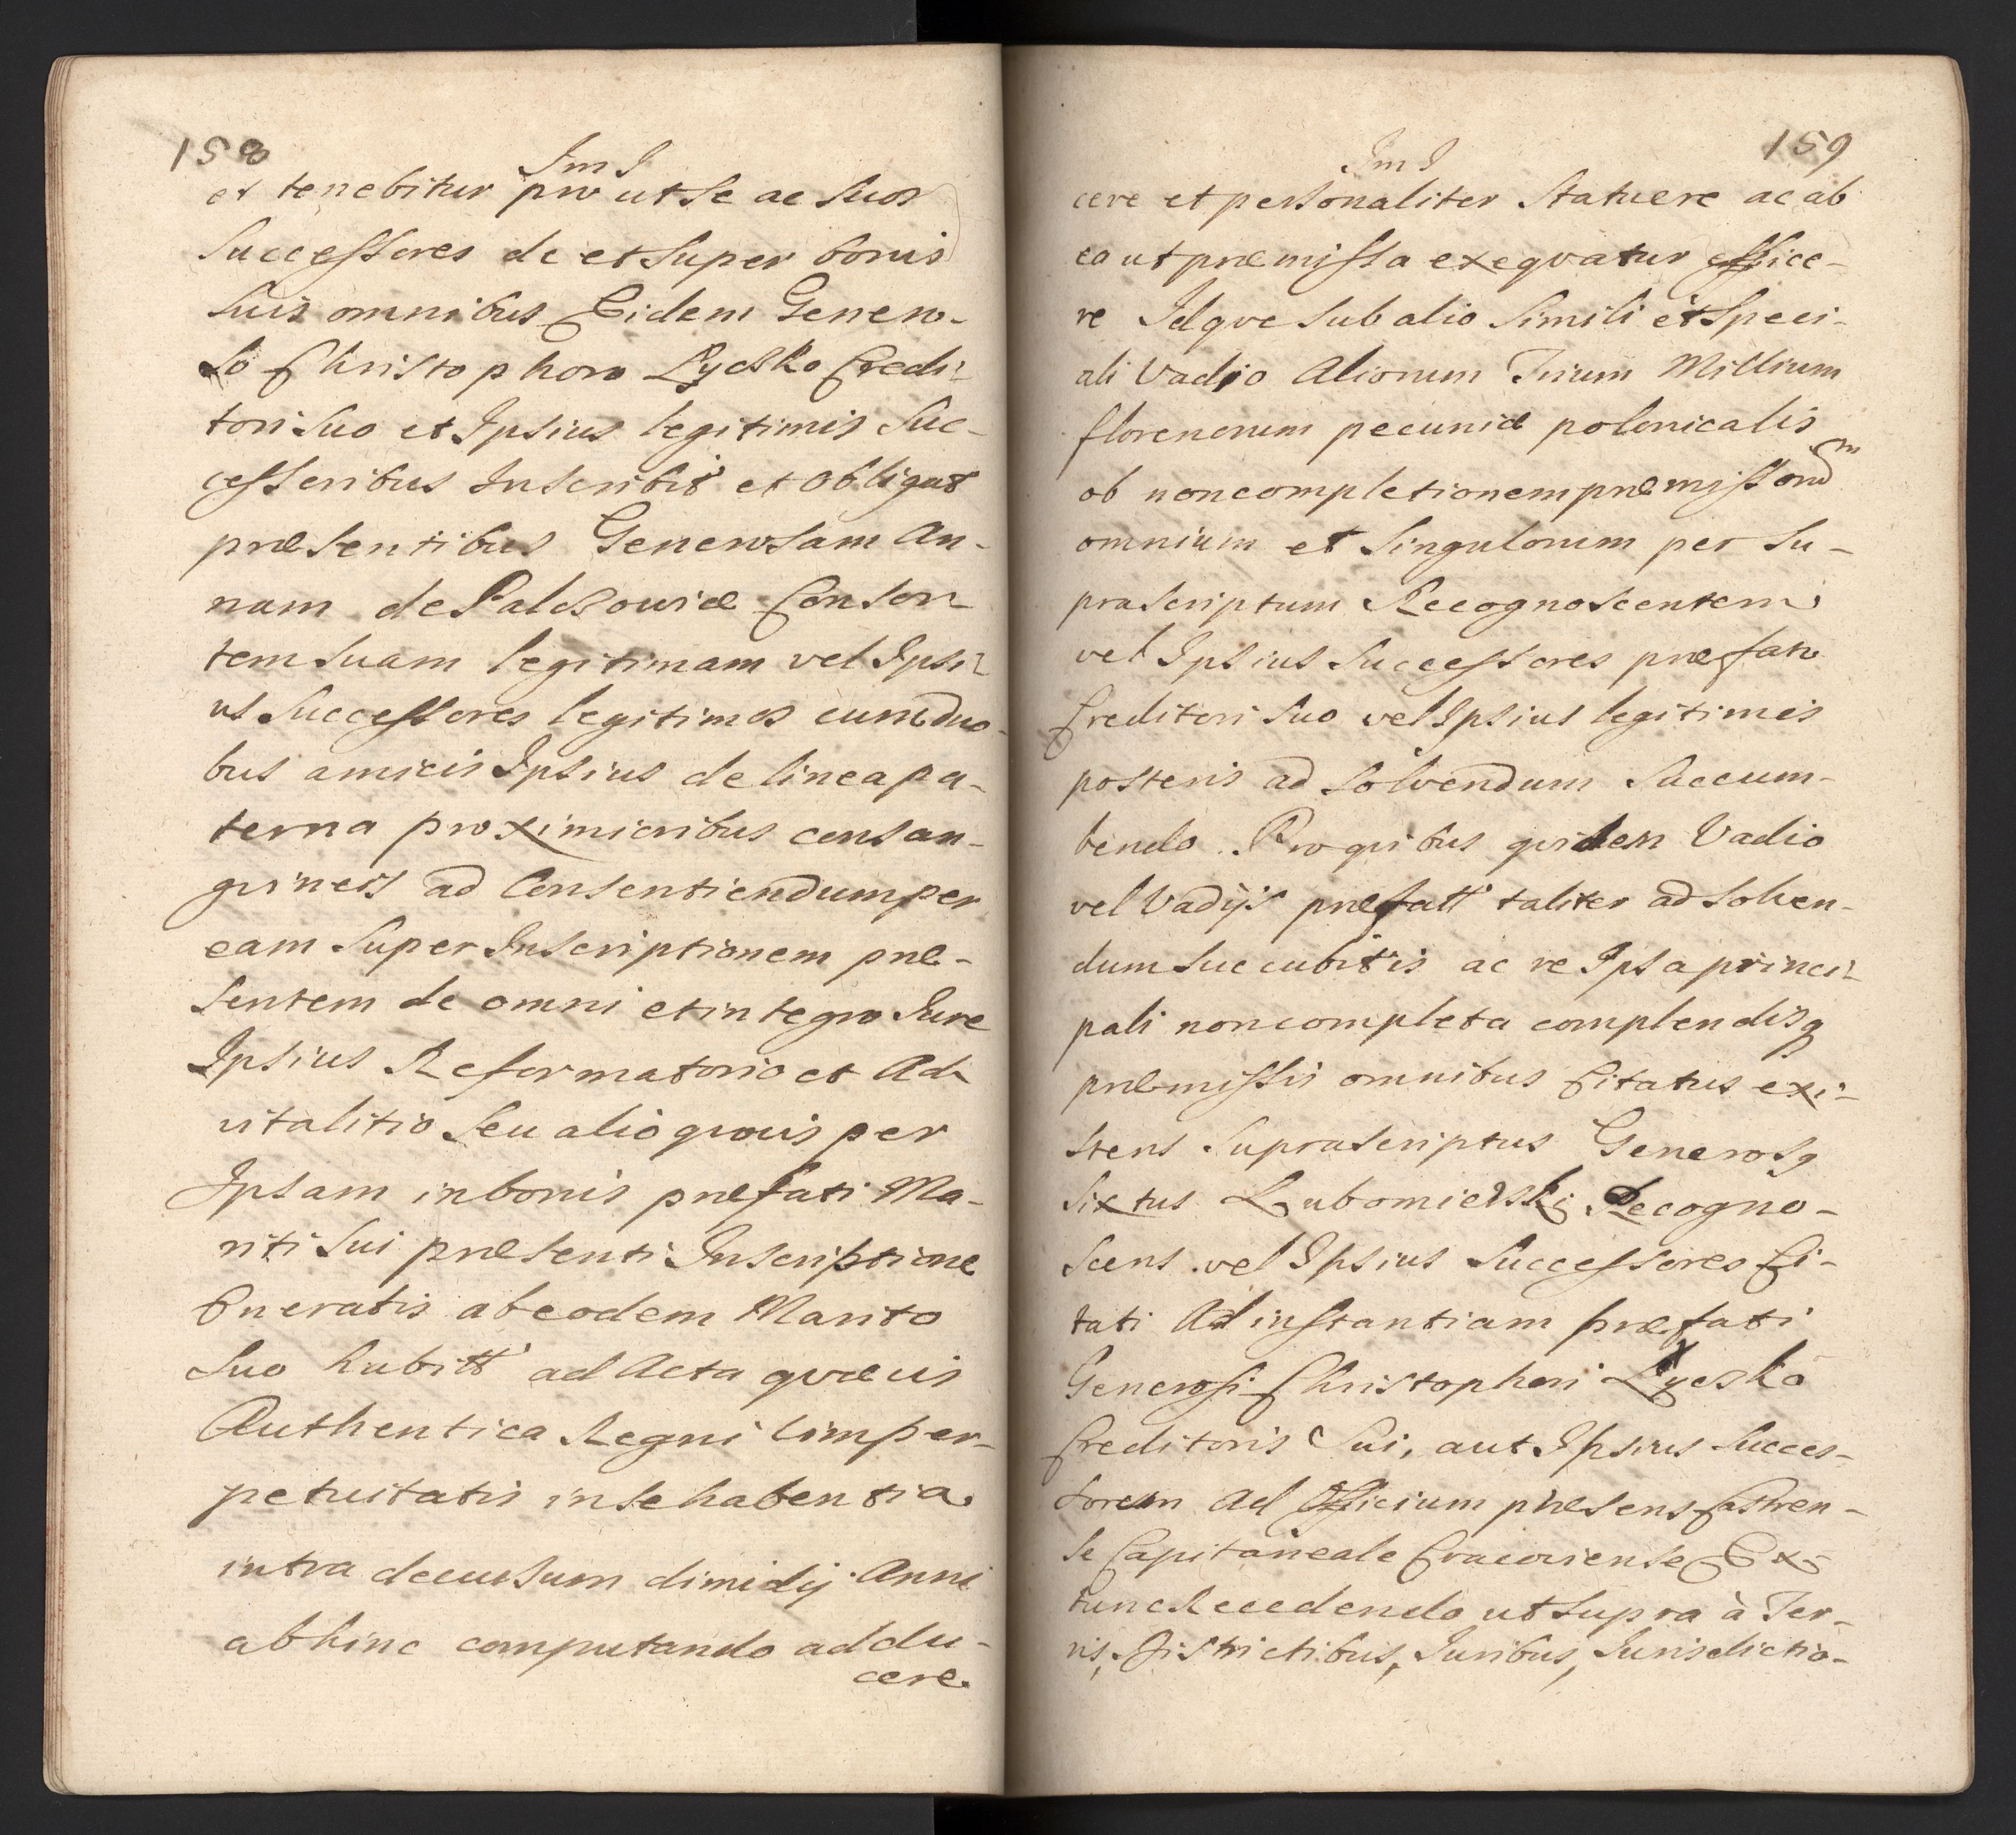 158
Im I
et tenebitur pro ut se ac suos
Successores de et super bonis
suis omnibus Eidem Genero-
so Christophoro Lycsko Credi-
tori suo et Ipsius legitimis suc-
cessoribus Inscribit et obligat
præsentibus Generosam An-
nam de Palczowice Consor-
tem suam legitimam vel Ipsi-
us Successores legitimos cum duo-
bus amicis Ipsius de linea pa-
terna proximioribus consan-
gvineis ad Consentiendum per
eam super Inscriptionem præ-
sentem de omni et integro Iure
Ipsius Reformatorio et Ad-
vitalitio seu alio qvovis per
Ipsam in bonis præfati Ma-
riti sui præsenti Inscriptione
Oneratis ab eodem Marito
suo habitt ad Acta qvævis
Authentica Regni vim per-
petuitatis in se habentia
intra decursum dimidij Anni
abhinc computando addu-
cere
159
Im I
cere et personaliter statuere ac ab
ea ut præmissa exeqvatur effice-
re Idqve sub alio simili et speci-
ali Vadio Aliorum Trium Millium
florenorum pecuniæ polonicalis
ob noncompletionem præmissorum
omnium et singulorum per su-
prascriptum Recognoscentem
vel Ipsius Successores præfato
Creditori suo vel Ipsius legitimis
posteris ad solvendum succum-
bendo. Pro qvibus qvidem Vadio
vel Vadijs præfatt taliter ad solven-
dum succubitis ac re Ipsa princi-
pali noncompleta complendisq
præmissis omnibus Citatus exi-
stens suprascriptus Generosq
Sixtus Lubomierski Recogno-
scens vel Ipsius Successores Ci-
tati Ad instantiam præfati
Generosi Christophori Lycsko
Creditoris Sui, aut Ipsius Succes-
sorum Ad Officium præsens Castren-
se Capitaneale Cracoviense Ex
tunc Recedendo ut supra à Ter-
ris, Districtibus, Iuribus, Iurisdictio-